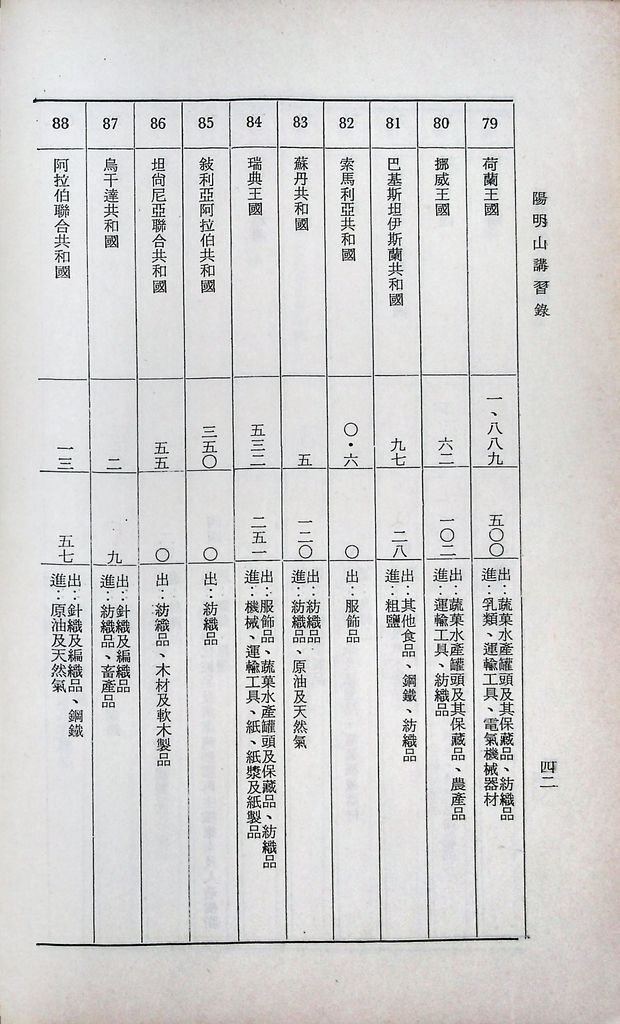 陽明山講習錄
四二
79
荷蘭王國
一、八八九
五〇〇
出：蔬菓水產罐頭及其保藏品、紡織品
進：乳類、運輸工具、電氣機械器材
80
挪威王國
六二
一〇二
出：蔬菓水產罐頭及其保藏品、農產品
進：運輸工具、紡織品
81
巴基斯坦伊斯蘭共和國
九七
二八
出：其他食品、鋼鐵、紡織品
進：粗鹽
82
索馬利亞共和國
〇・六
〇
出：服飾品
83
蘇丹共和國
五
一二〇
出：紡織品
進：紡織品、原油及天然氣
84
瑞典王國
五三二
二五一
出：服飾品、蔬菓水產罐頭及保藏品、紡織品
進：機械、運輸工具、紙、紙漿及紙製品
85
敍利亞阿拉伯共和國
三五〇
〇
出：紡織品
86
坦尚尼亞聯合共和國
五五
〇
出：紡織品、木材及軟木製品
87
烏干達共和國
二
九
出：針織及編織品
進：紡織品、畜產品
88
阿拉伯聯合共和國
一三
五七
出：針織及編織品、鋼鐵
進：原油及天然氣